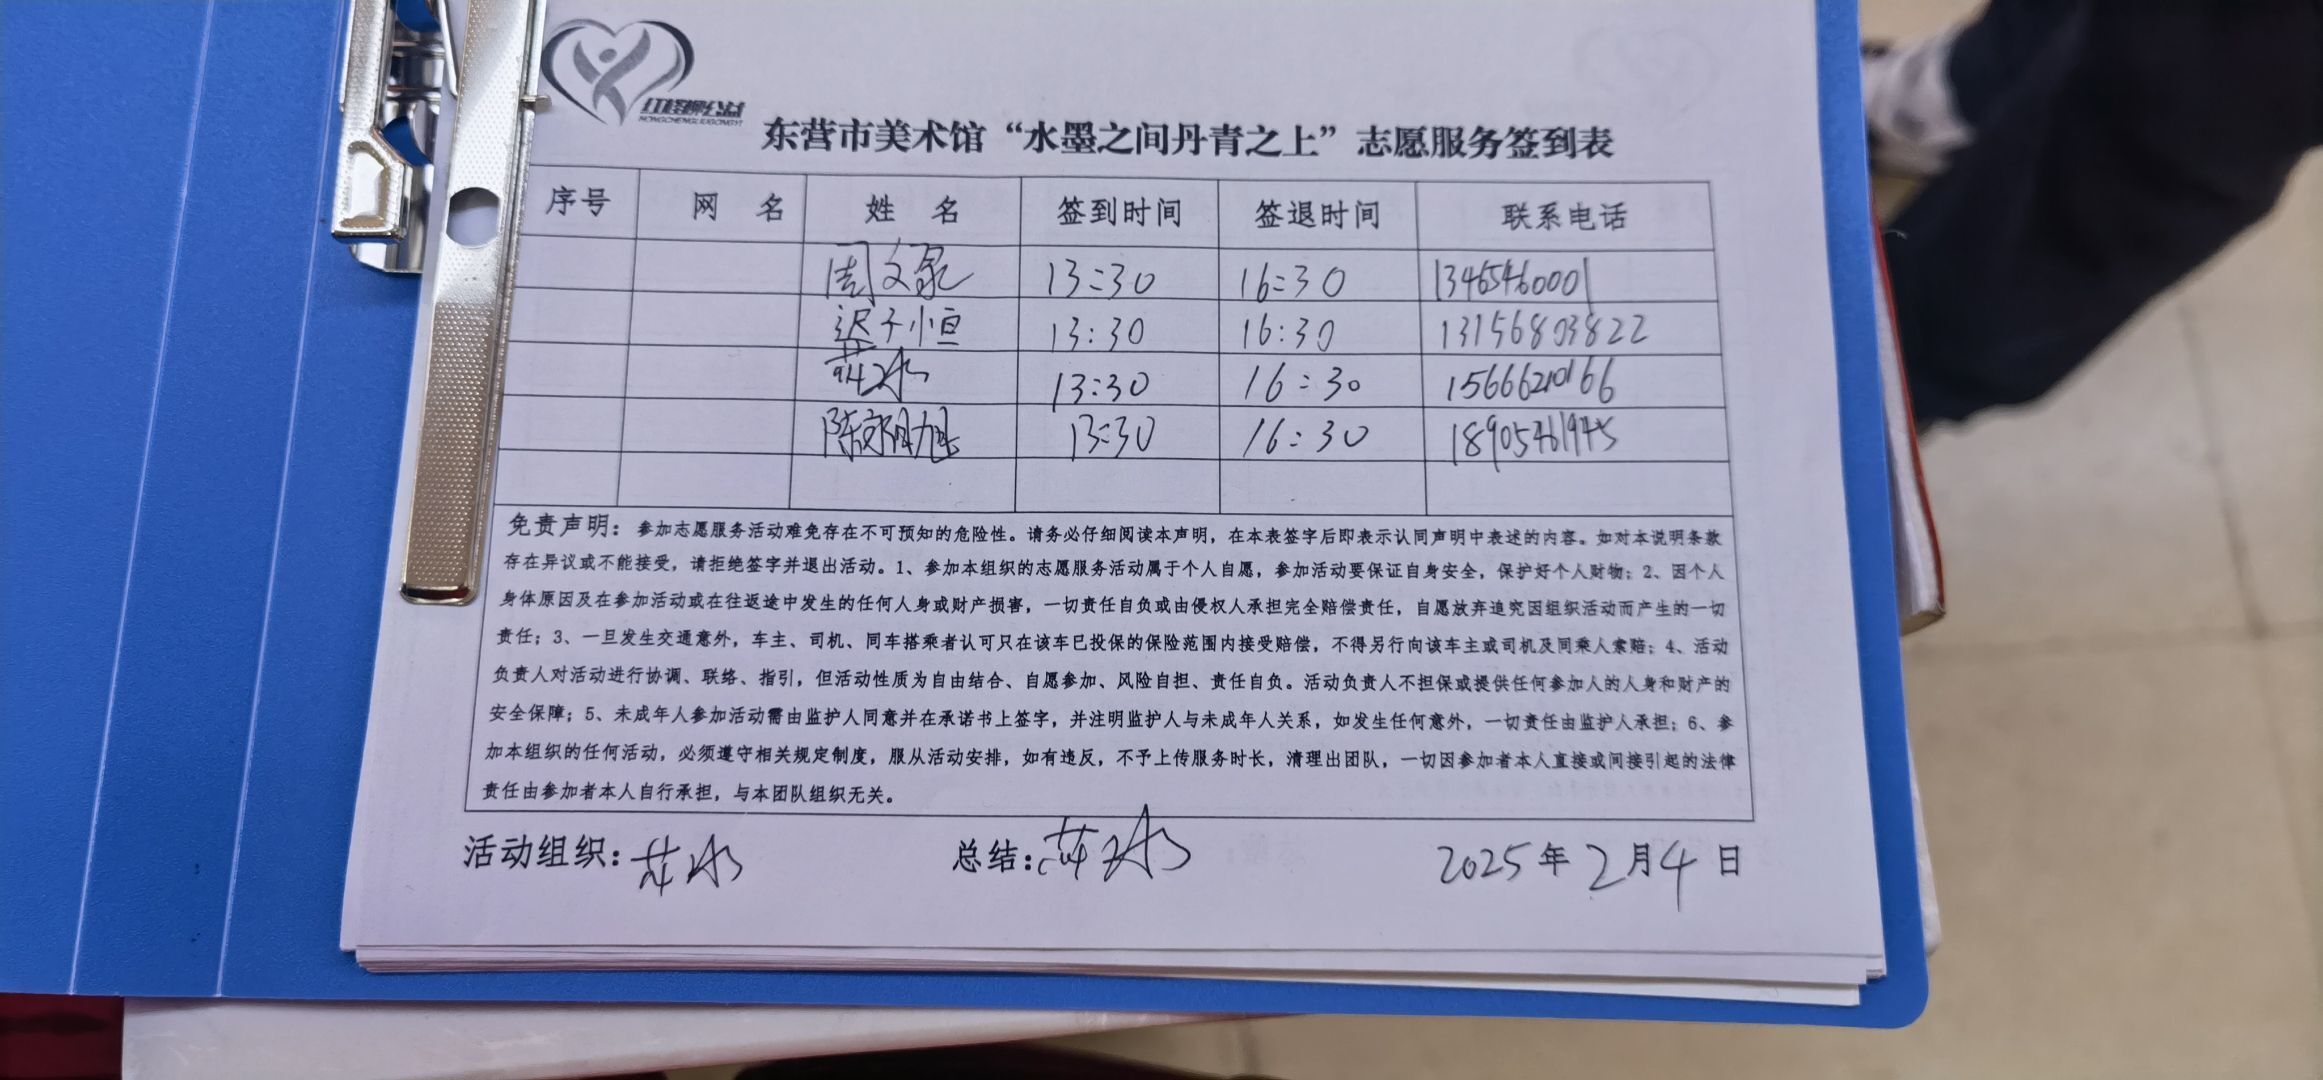 红柽柳公益
HONGCHENGLIUGONGYI
东营市美术馆“水墨之间丹青之上”志愿服务签到表
序号 网 名 姓 名 签到时间 签退时间 联系电话
周文 13:30 16:30 13465460001
迟子恒 13:30 16:30 13156803822
13:30 16:30 15666210166
陈 旭 13:30 16:30 18905461945
免责声明：参加志愿服务活动难免存在不可预知的危险性。请务必仔细阅读本声明，在本表签字后即表示认同声明中表述的内容。如对本说明条款
存在异议或不能接受，请拒绝签字并退出活动。1、参加本组织的志愿服务活动属于个人自愿，参加活动要保证自身安全，保护好个人财物；2、因个人
身体原因及在参加活动或在往返途中发生的任何人身或财产损害，一切责任自负或由侵权人承担完全赔偿责任，自愿放弃追究因组织活动而产生的一切
责任；3、一旦发生交通意外，车主、司机、同车搭乘者认可只在该车已投保的保险范围内接受赔偿，不得另行向该车主或司机及同乘人索赔；4、活动
负责人对活动进行协调、联络、指引，但活动性质为自由结合、自愿参加、风险自担、责任自负。活动负责人不担保或提供任何参加人的人身和财产的
安全保障；5、未成年人参加活动需由监护人同意并在承诺书上签字，并注明监护人与未成年人关系，如发生任何意外，一切责任由监护人承担；6、参
加本组织的任何活动，必须遵守相关规定制度，服从活动安排，如有违反，不予上传服务时长，清理出团队，一切因参加者本人直接或间接引起的法律
责任由参加者本人自行承担，与本团队组织无关。
活动组织： 总结： 2025年2月4日